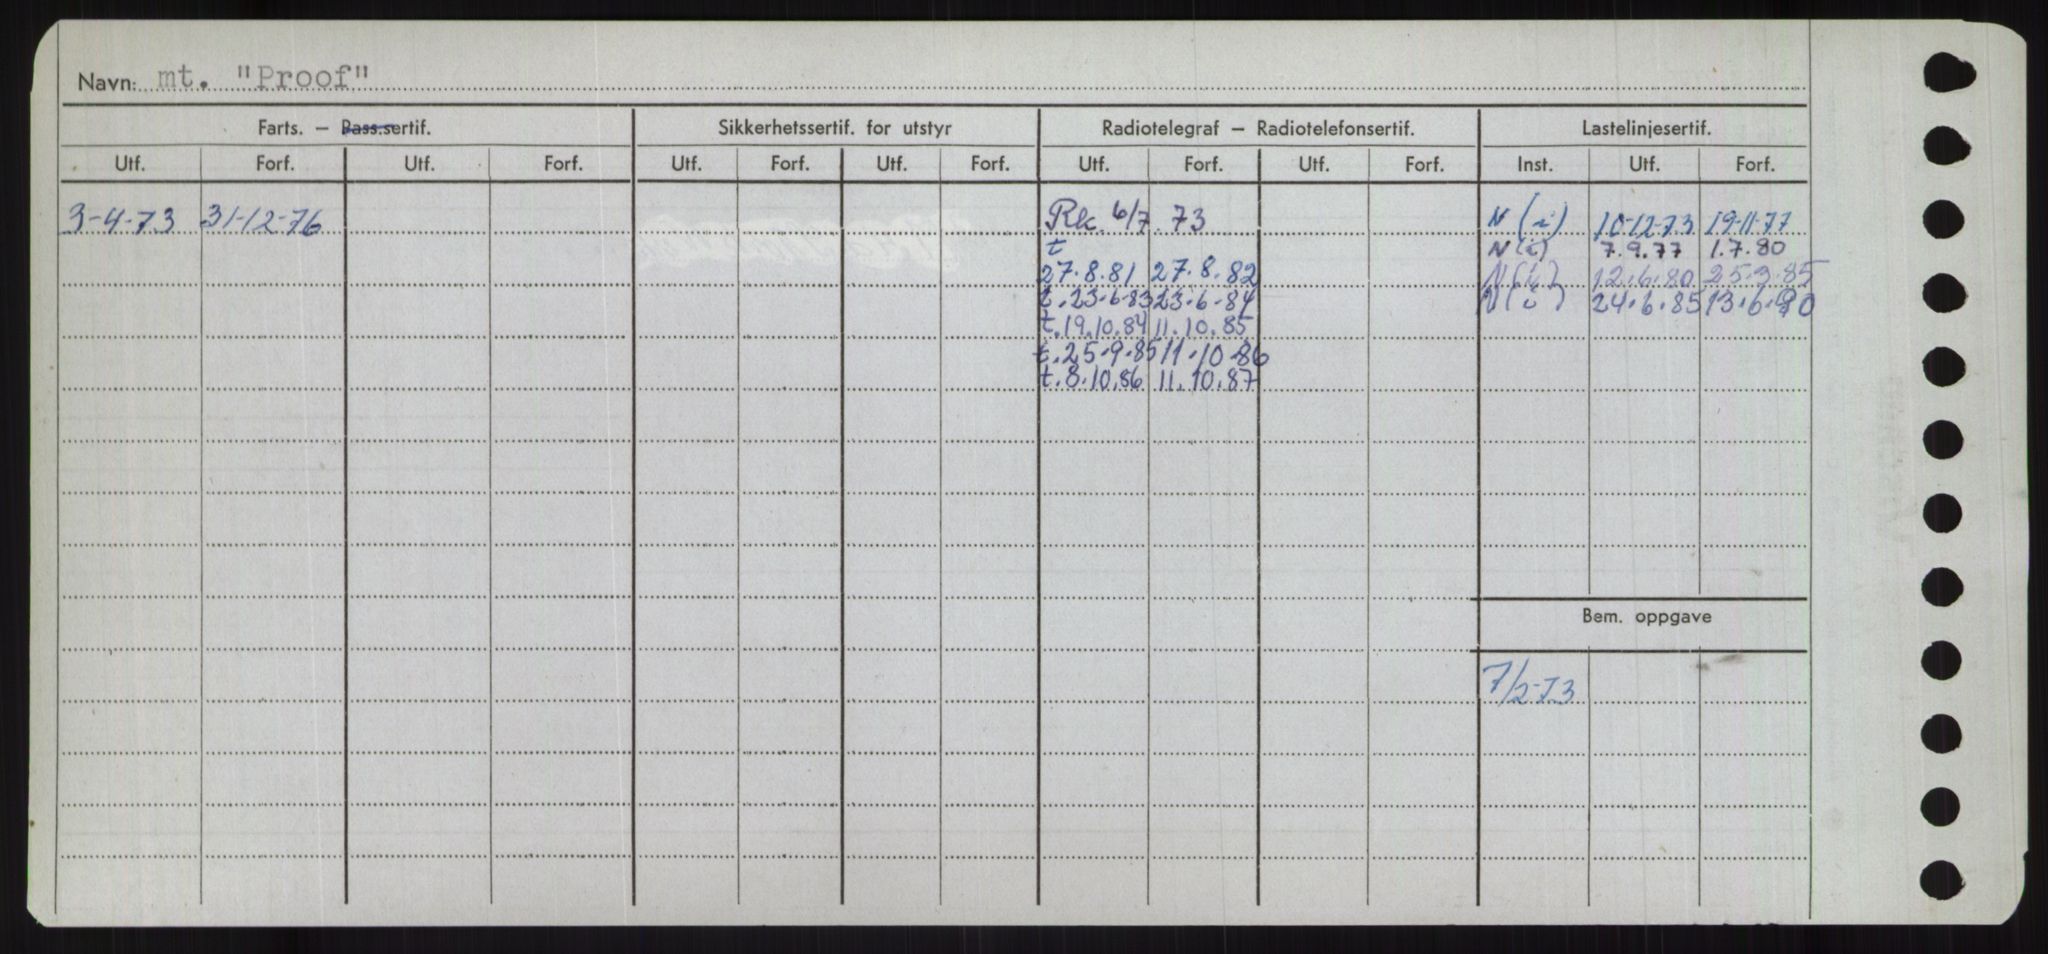 Navn: mt. "Proof"
Farts. – Pass.sertif. Sikkerhetssertif. for utstyr Radiotelegraf – Radiotelefonsertif. Lastelinjesertif.
Utf. Forf. Utf. Forf. Utf. Forf. Utf. Forf. Utf. Forf. Utf. Forf. Inst. Utf. Forf.
3-4-73 31-12-76 Rk. 6/7. 73 N (i) 10-12-73 19-11-77
t N (i) 7.9.77 1.7.80
27.8.81 27.8.82 N(i) 12.6.80 25.3.85
t.23.6.83 23.6.84 N(i) 24.6.85 13.6.90
t.19.10.84 11.10.85
t.25.9.85 11.10.86
t.8.10.86 11.10.87
Bem. oppgave
7/2-73